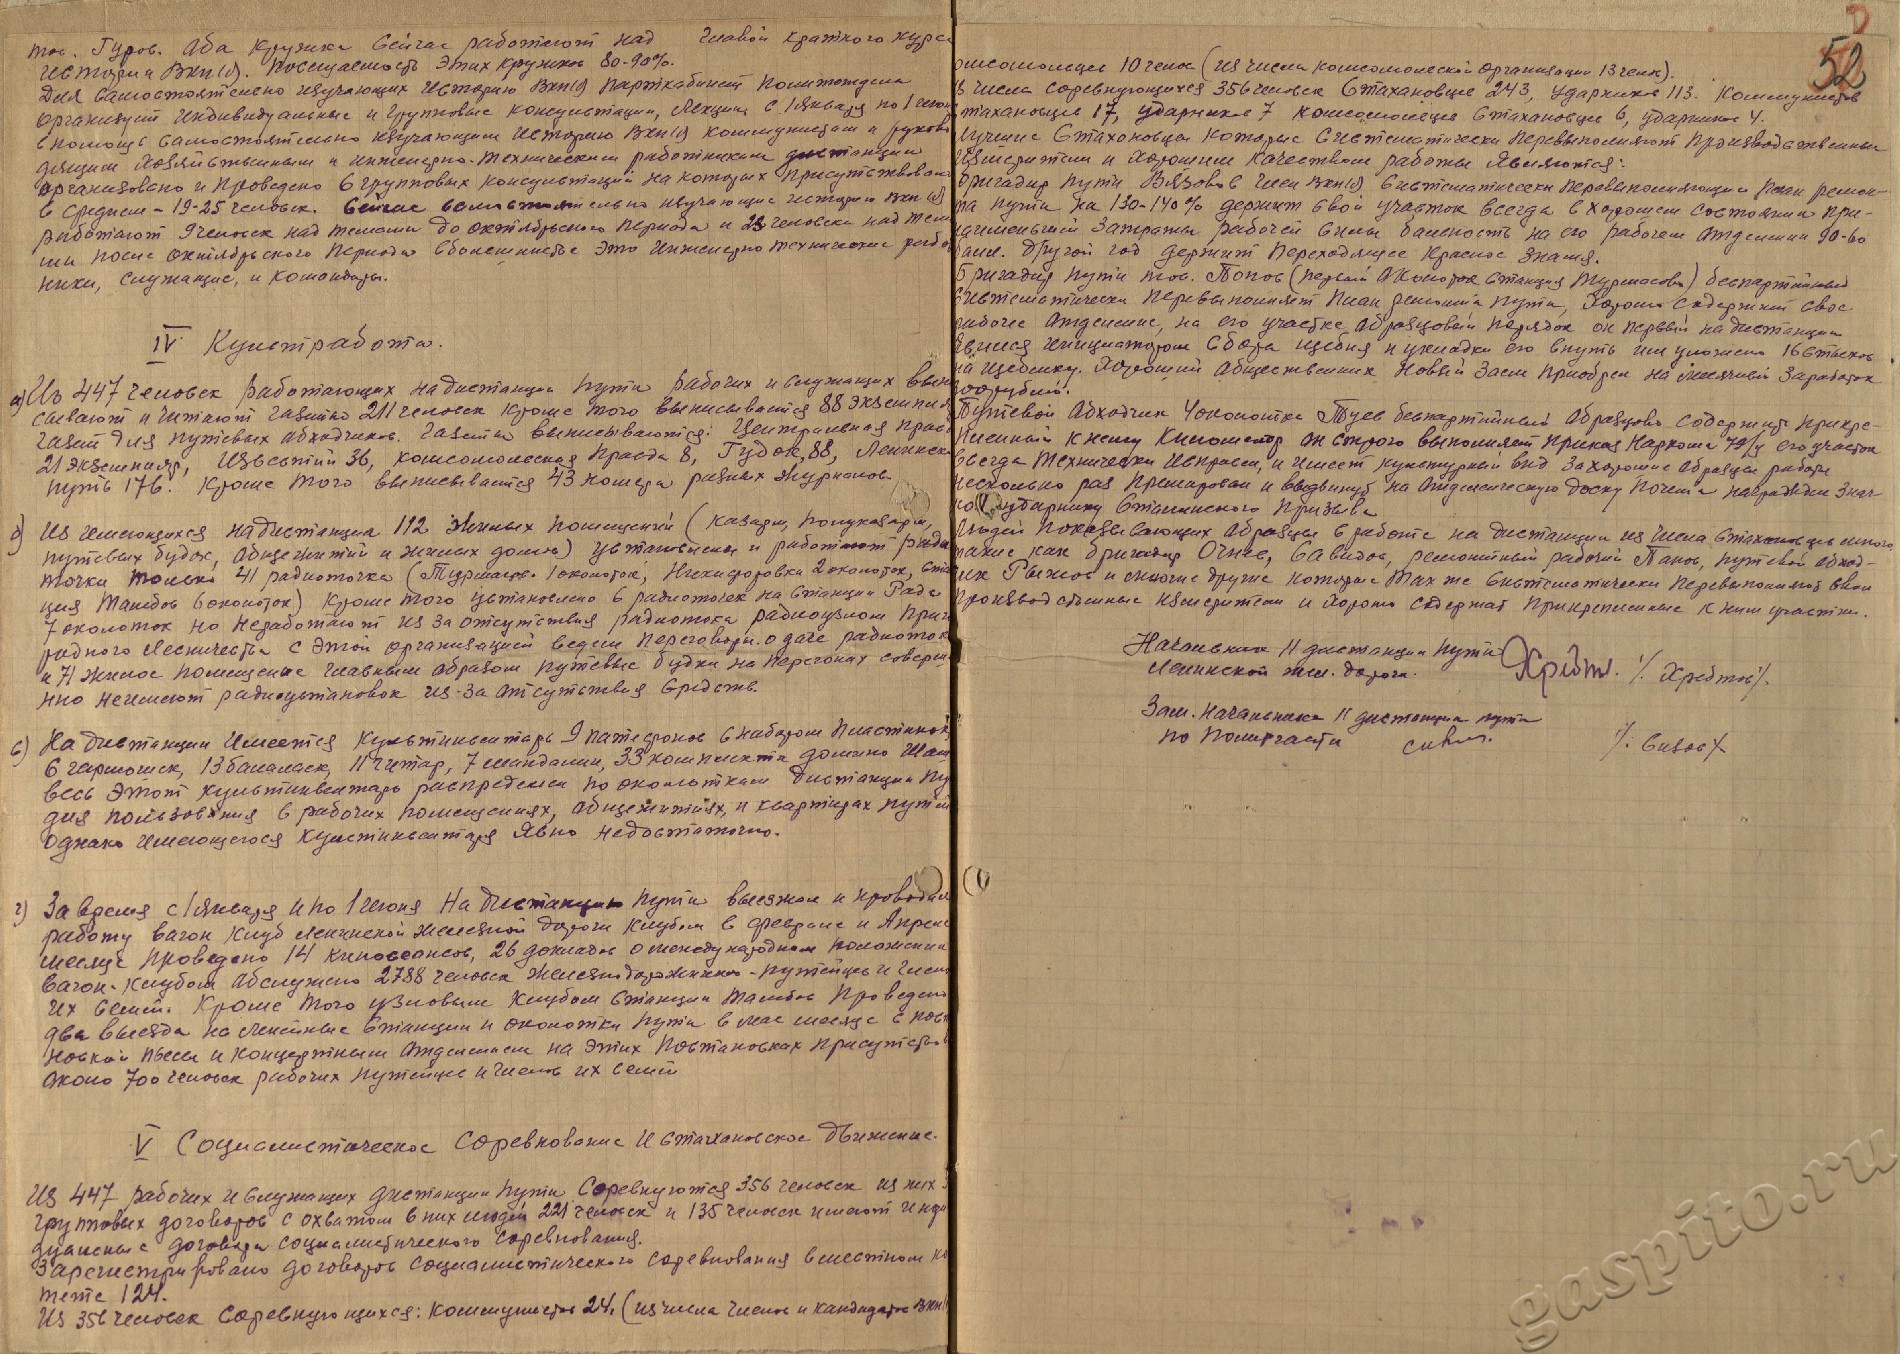 тов. Гуров. Оба кружка сейчас работают над главой краткого курса
истории ВКП(б). Посещаемость этих кружков 80-90%.
Для самостоятельно изучающих историю ВКП(б) парткабинет политотдела
организует индивидуальные и групповые консультации, лекции с 1 января по 1 июня
в помощь самостоятельно изучающим историю ВКП(б) коммунистам и руково
дящим хозяйственным и инженерно-техническим работникам дистанции
организовано и проведено 6 групповых консультаций на которых присутствовало
в среднем - 19-25 человек. Сейчас самостоятельно изучающие историю ВКП(б)
работают 9 человек над темами до октябрьского периода и 23 человека над тема
ми после октябрьского периода в большинстве это инженерно технические работ
ники, служащие, и командиры.
IV Культработа.
а) Из 447 человек работающих на дистанции пути рабочих и служащих выпи
сывают и читают газеты 211 человек кроме того выписывается 88 экземпля
газет для путевых обходчиков. Газеты выписываются: Центральная Правда
21 экземпляр, Известий 36, комсомольская правда 8, Гудок 88, Ленински
путь 176. Кроме того выписывается 43 номера разных журналов.
б) Из имеющихся на дистанции 112 жилых помещений (казарм, полуказарм,
путевых будок, общежитий и жилых домов) установлены и работают радио
точки только 41 радиоточка (Турмасово 1 околоток, Никифоровка 2 околоток, стан
ция Тамбов 6 околоток) кроме того установлено 6 радиоточек на станции Рада
7 околоток но неработают из за отсутствия радиотока радиоузлом Приго
родного лесничества с этой организацией ведем переговоры о даче радиоток
и 71 жилое помещение главным образом путевые будки на перегонах соверше
нно неимеют радиоустановок из-за отсутствия средств.
в) На дистанции имеется культинвентарь 9 патефонов с набором пластинок
6 гармошек, 13 балалаек, 11 гитар, 7 мандалин, 33 комплекта домино
весь этот культинвентарь распределен по околоткам дистанции пу
для пользования в рабочих помещениях, общежитиях, и квартирах путей
однако имеющегося культинвентаря явно недостаточно.
г) За время с 1 января и по 1 июня на дистанцию пути выезжал и проводил
работу вагон клуб Ленинской железной дороги клубом в феврале и Апреле
месяце проведено 14 киносеансов, 26 докладов о международном положении
вагон-клубом обслужено 2788 человек железнодорожников - путейцев и члено
их семей. Кроме того узловым клубом станции Тамбов проведено
два выезда на линейные станции и околотки пути в мае месяце с поста
новкой пьесы и концертным отделением на этих постановках присутство
около 700 человек рабочих путейцев и членов их семей
V Социалистическое соревнование и стахановское движение.
Из 447 рабочих и служащих дистанции пути соревнуются 356 человек из них
групповых договоров с охватом в них людей 221 человек и 135 человек имеют инди
дуальные договора социалистического соревнования.
Зарегистрировано договоров социалистического соревнования в местном ко
тете 124.
Из 356 человек соревнующихся: коммунистов 24. (из числа членов и кандидатов ВКП(
52
омсомольцев 10 челов (из числа комсомольской организации 13 челов).
Из числа соревнующихся 356 человек стахановцев 243, ударников 113. Коммунистов
стахановцев 17, ударников 7 комсомольцев стахановцев 6, ударников 4.
лучшие стахановцы которые систематически перевыполняют производственные
измерители и хорошим качеством работы являются:
Бригадир пути Вязовов член ВКП(б) систематически перевыполняющий план ремон-
та пути на 130-140% держит свой участок всегда в хорошем состоянии при-
наименьшей затраты рабочей силы бальность на его рабочем отделении 40-60
балл. Другой год держит переходящее красное знамя.
Бригадир пути тов. Попов (первый околоток станция Турмасово) беспартийный
систематически перевыполняет план ремонта пути, хорошо содержит свое
рабочее отделение, на его участке образцовый порядок он первый на дистанции
явился инициатором сбора щебня и укладки его в путь им уложено 16 стыков
на щебенку. Хороший общественник новый заем приобрел на месячный заработок
рублей.
Путевой обходчик 4 околотка Туев беспартийный образцово содержит прикре-
пленный к нему километр он строго выполняет приказ Наркома 79/ц его участок
всегда технически исправен, и имеет культурный вид за хорошие образцы работы
несколько раз премирован и выдвинут на отделенческую доску почета награжден знач-
ком ударнику Сталинского призыва
Людей показывающих образцы в работе на дистанции из числа стахановцев много
такие как бригадир Огнев, Савидов, ремонтный рабочий Панов, путевой обход-
чик Рыжов и многие другие которые так же систематически перевыполняют свои
производственные измерители и хорошо содержат прикрепленные к ним участки.
Начальник 11 дистанции пути
Ленинской жел. дороги. /. Хребтов/.
Зам. Начальника 11 дистанции пути
по политчасти /. Сивов/.
gaspito.ru